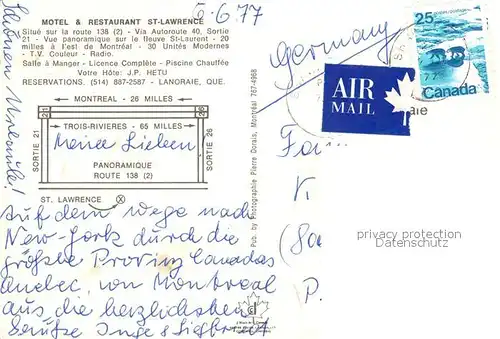 MOTEL & RESTAURANT ST-LAWRENCE
Situé sur la route 138 (2) - Via Autoroute 40, Sortie
21 - Vue panoramique sur le fleuve St-Laurent - 20
milles à l'est de Montréal - 30 Unités Modernes
- T.V. Couleur - Radio -
Salle à Manger - Licence Complète - Piscine Chauffée
Votre Hôte: J.P. HETU
RESERVATIONS. (514) 887-2587 - LANORAIE, QUE.
5.6.77
Schönen Urlaub!
MONTREAL - 26 MILLES
21
26
TROIS-RIVIERES - 65 MILLES
SORTIE 21
SORTIE 26
Meine Lieben
PANORAMIQUE
ROUTE 138 (2)
ST. LAWRENCE X
Auf dem Wege nach
New-York durch die
größte Provinz Canadas
Quebec, von Montreal
aus die herzlichsten
Grüße Inge & Siegbert
Pub. by Photographie Pierre Dorais, Montréal 767-4968
Germany
25
Canada
AIR
MAIL
aie
Fa
K
P.
privacy protection
Datenschutz